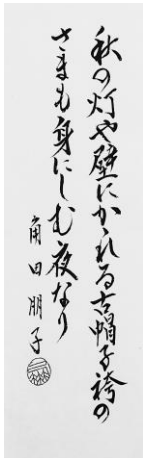 秋の灯や壁にかかれる古帽子袴の
さまも身にしむ夜なり
角田朋子